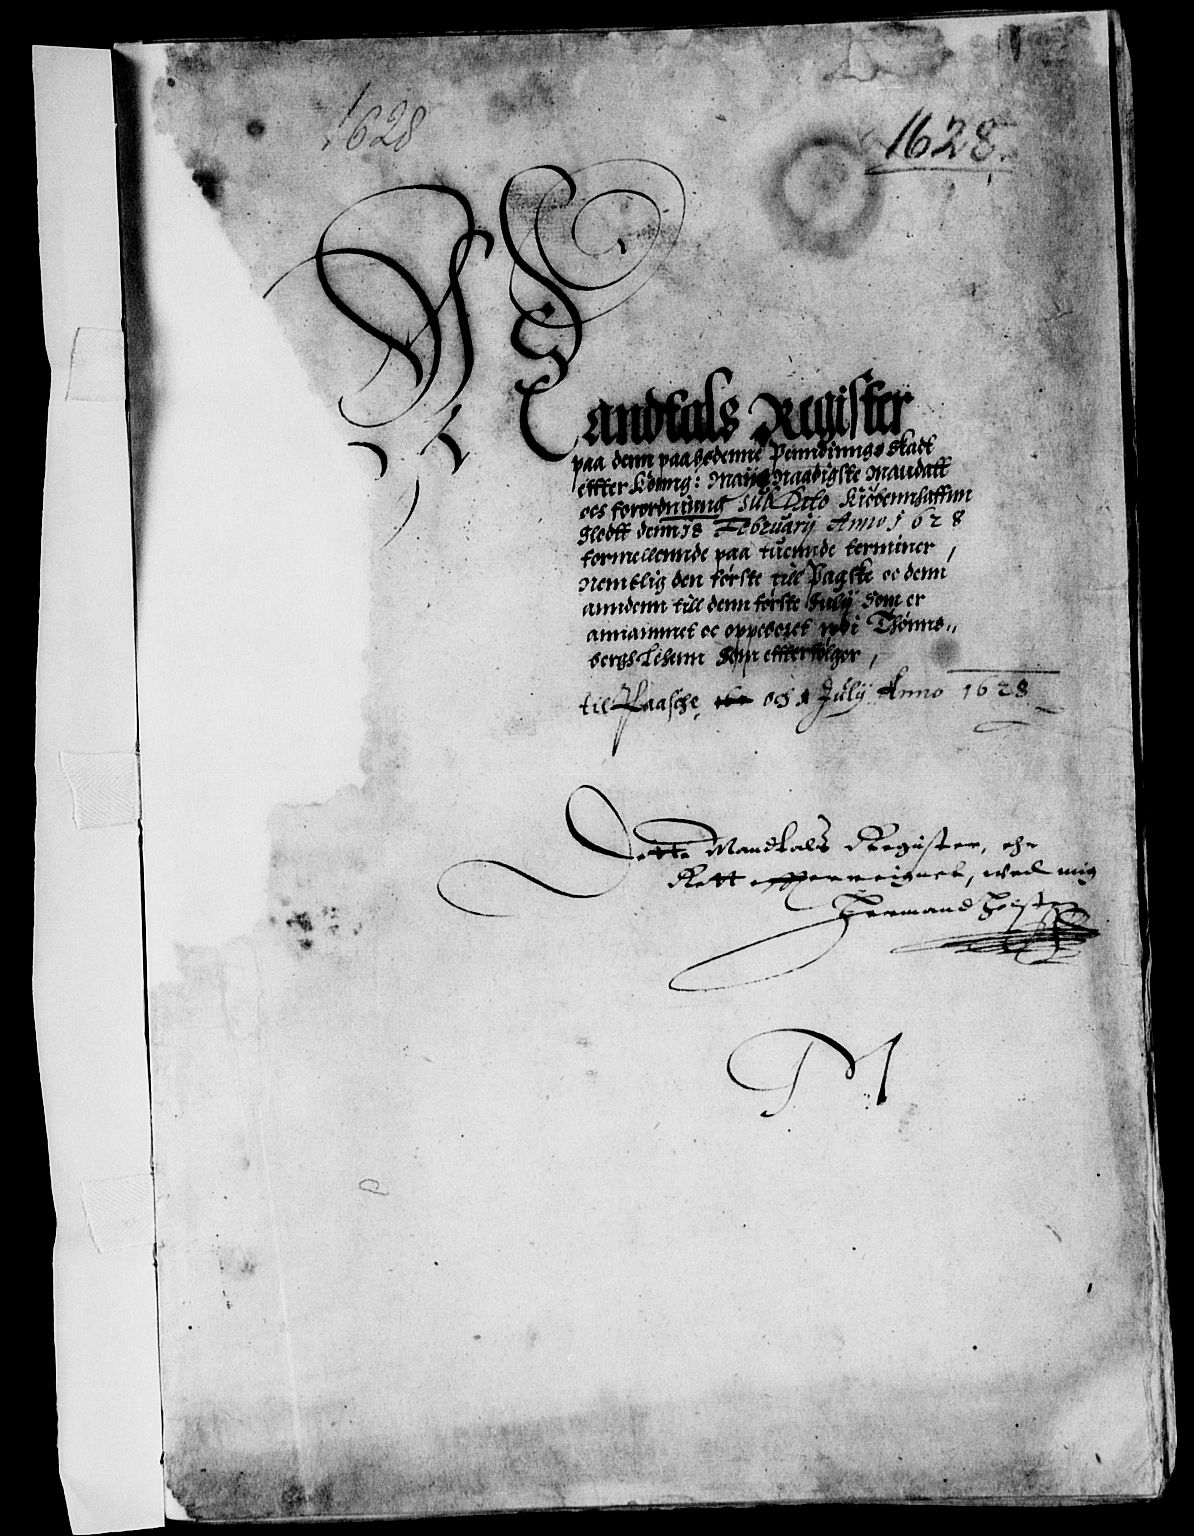 1628
1628
Mandtals Register
paa denn paabødenne Penndinngs Skadt
effter Konng: May: Naadigste Mandatt
och forordniing Sub Dato Kiøbennhaffnn
Slodtt denn 18 February Anno 1628
formellennde paa tuennde terminer,
Nemblig den første till Pagske oc denn
anndenn till denn første July Som er
annammet oc oppeboret udi Thønns„
bergs Lehenn Som effterfølger,
til Paasche och 1 July Anno 1628
Dette Mandtals Register, ehr
Rett offuerreignet, wed mig
Hermand
M